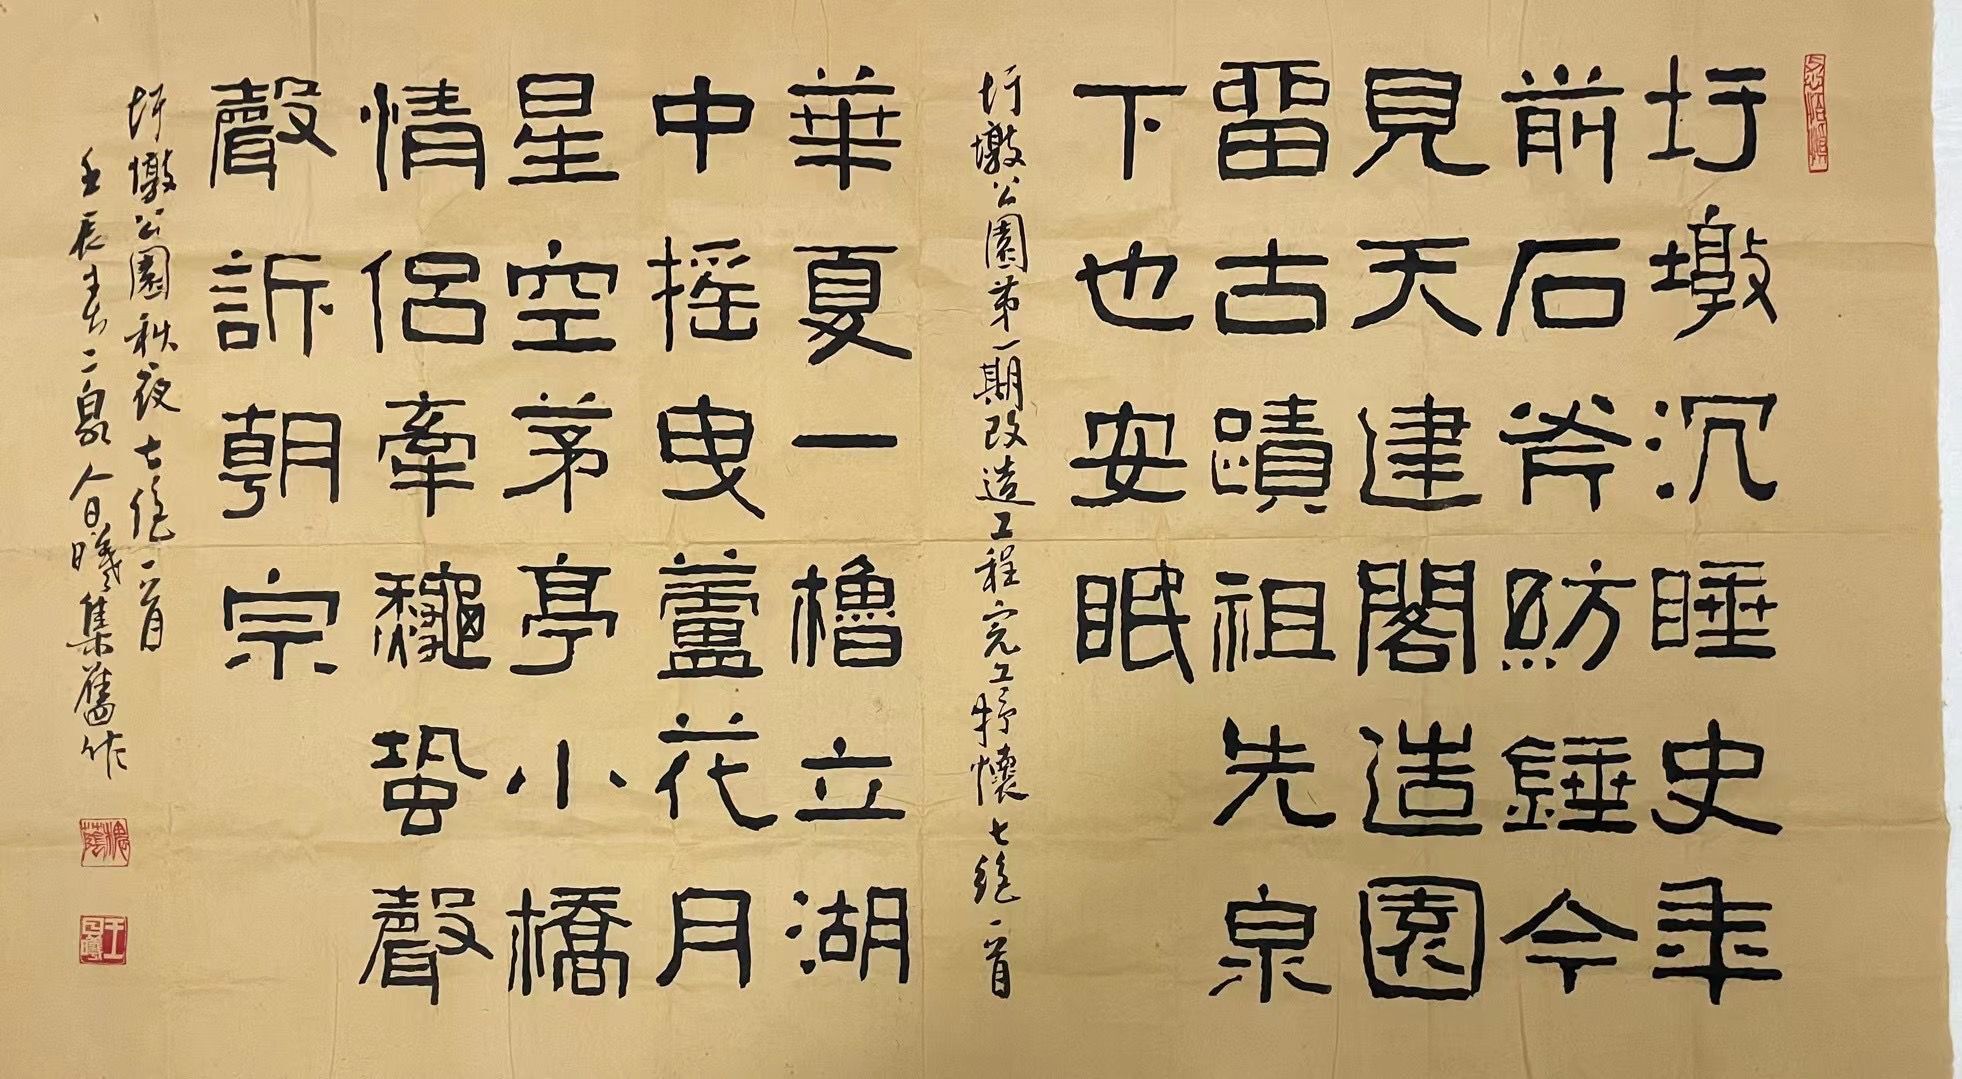 圩墩沉睡史年
前石斧舫錘今
見天建閣造園
留古蹟祖先泉
下也安眠
圩墩公園第一期改造工程完工抒懷七絕一首
華夏一櫓立湖
中摇曳蘆花月
星空茅亭小橋
情侣牽龝蛩聲
聲訴朝宗
圩墩公園秋夜七絕一首
壬辰春二泉人日曦集舊作